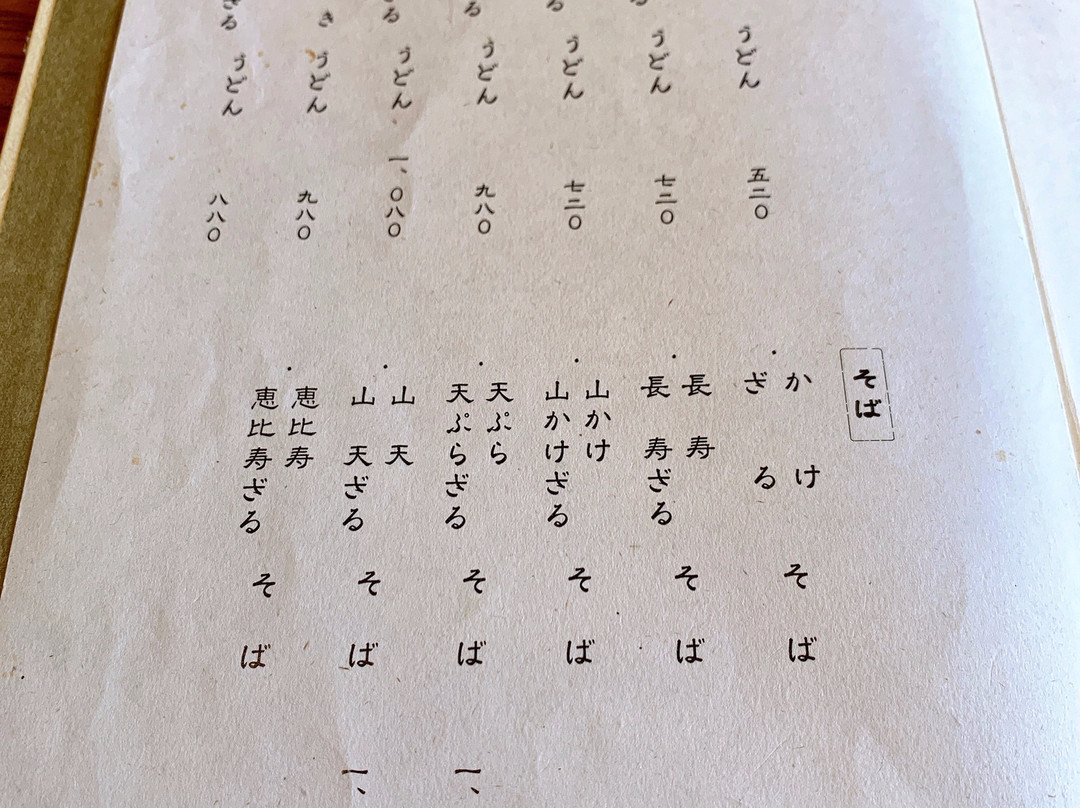 うどん 五二〇
る うどん 七二〇
る うどん 七二〇
る うどん 九八〇
る うどん 一、〇八〇
き うどん 九八〇
ざる うどん 八八〇
そば
・かけ
ざる
そば
・長寿
長寿ざる
そば
・山かけ
山かけざる
そば
・天ぷら
天ぷらざる
そば 一、
・山天
山天ざる
そば 一、
・恵比寿
恵比寿ざる
そば